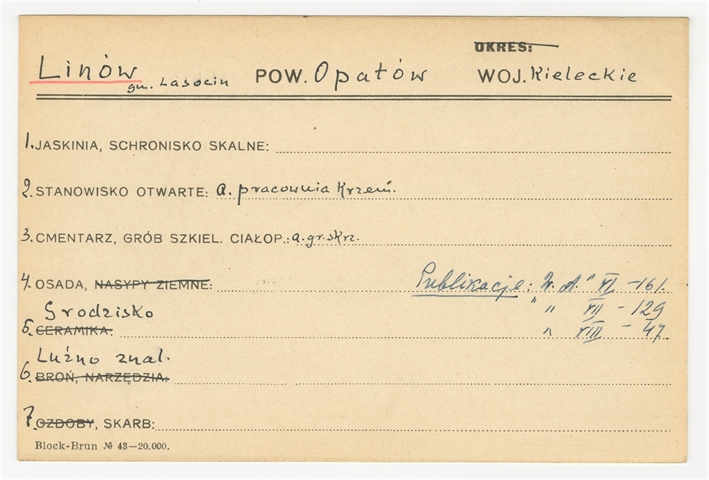 OKRES:
Linów gm. Lasocin POW. Opatów WOJ. Kieleckie
1. JASKINIA, SCHRONISKO SKALNE:
2. STANOWISKO OTWARTE: a. pracownia Krzem.
3. CMENTARZ, GRÓB SZKIEL. CIAŁOP.: a. gr. skrz.
4. OSADA, NASYPY ZIEMNE: Publikacje: W. A." VI - 161.
Grodzisko " " VII - 129
5. CERAMIKA: " VIII - 47
Luźno znal.
6. BROŃ, NARZĘDZIA:
7. OZDOBY, SKARB:
Block-Brun № 43—20.000.